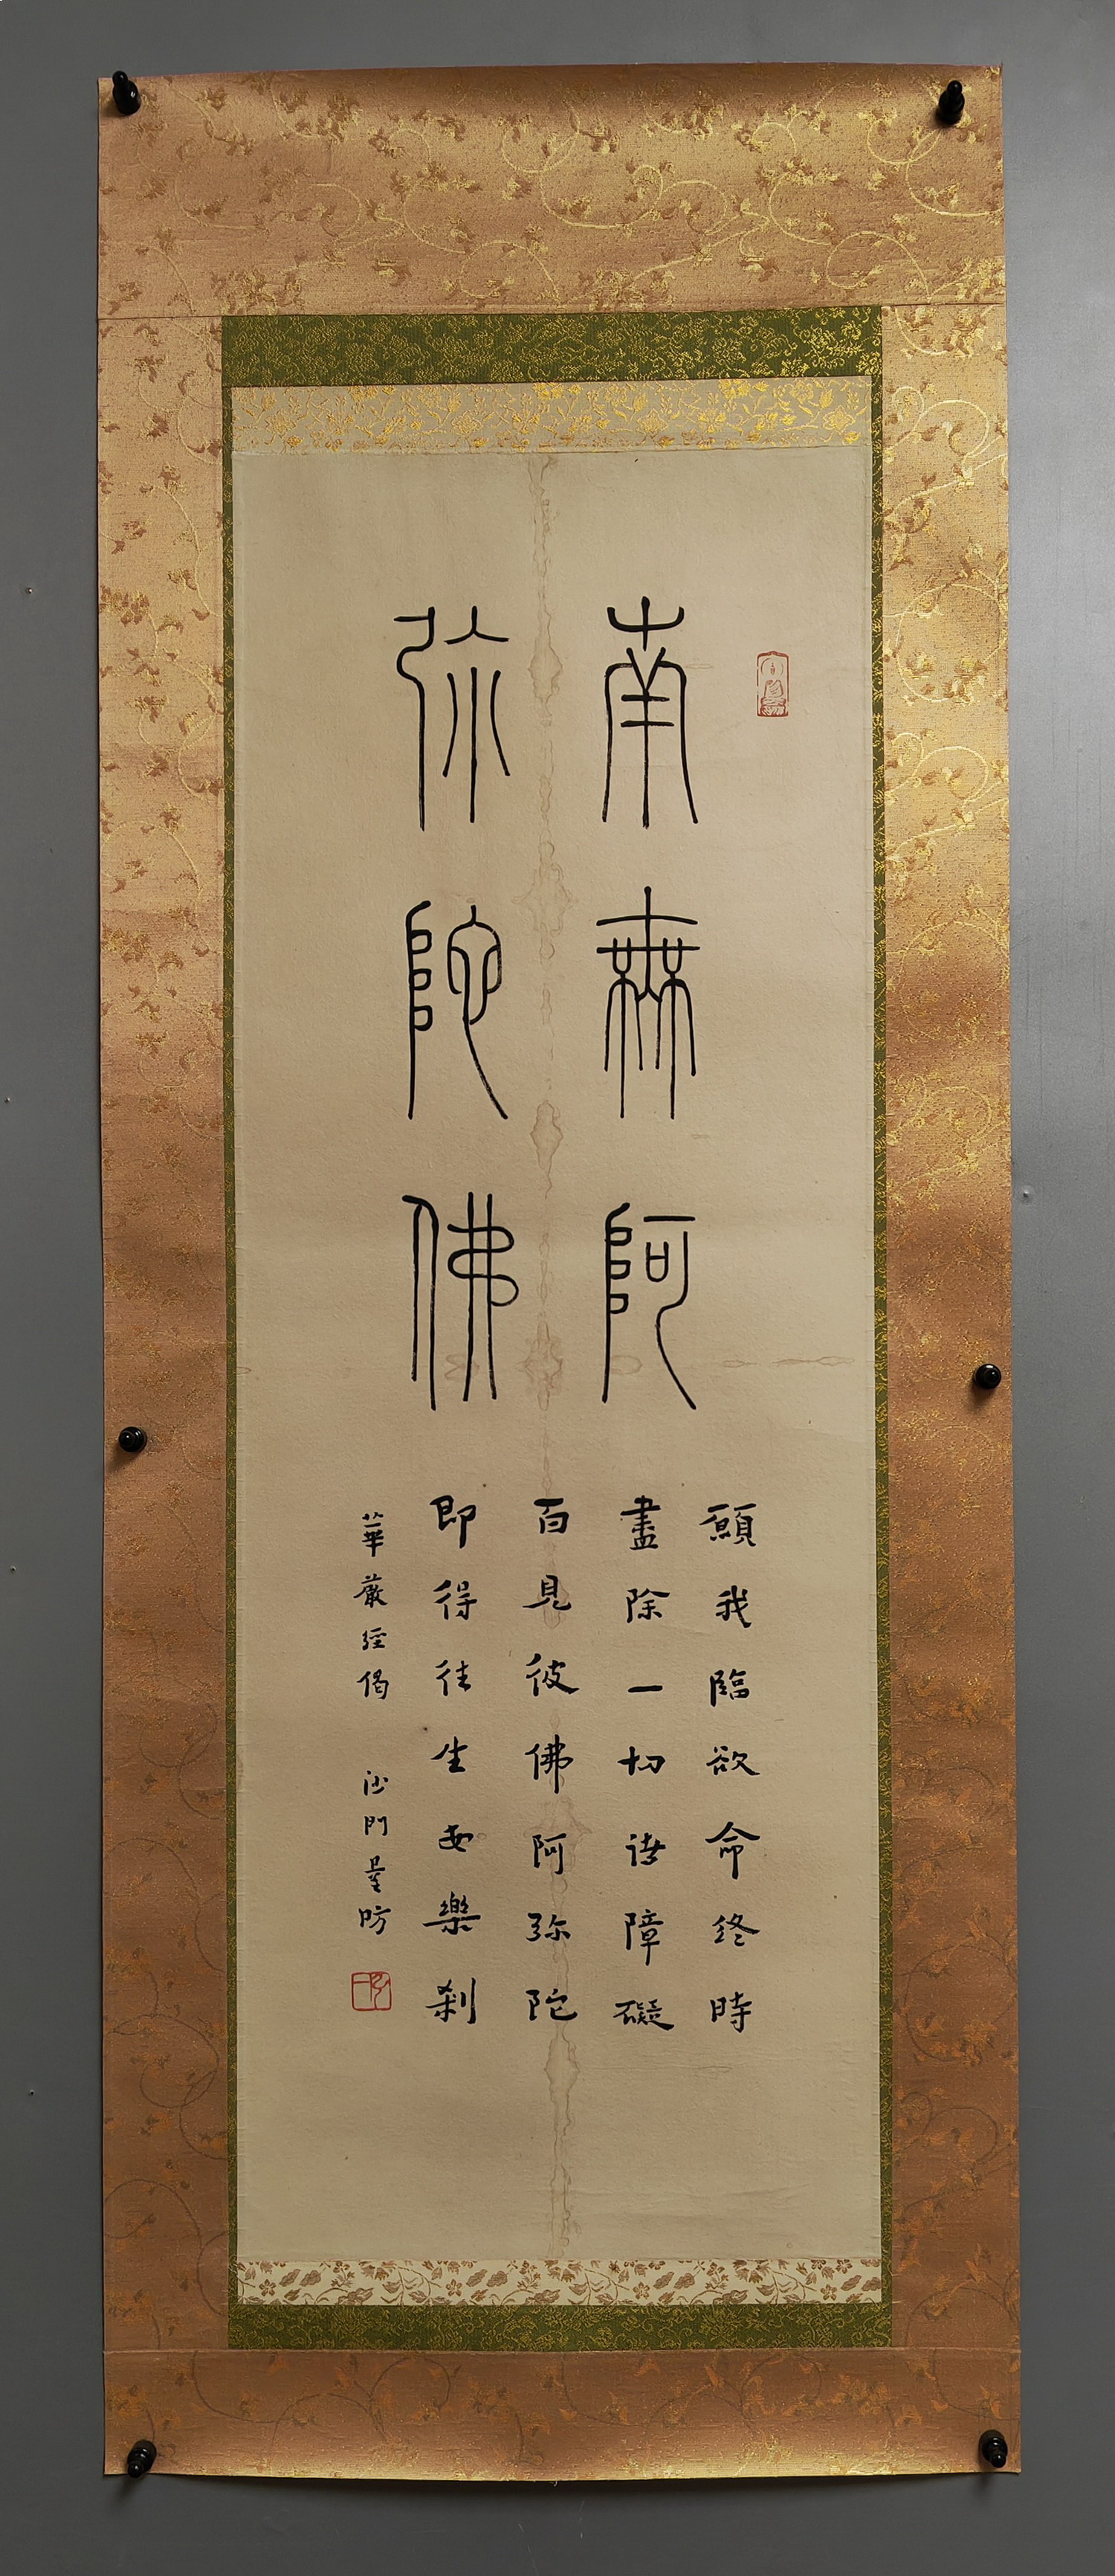 南無阿
弥陀佛
願我臨欲命終時
盡除一切諸障礙
面見彼佛阿弥陀
即得往生安樂刹
華嚴經偈 沙門曇昉
弘一